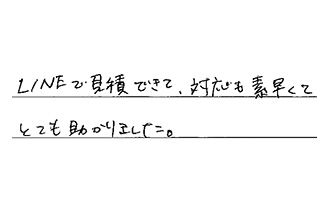 LINEで見積できて、対応も素早くて
とても助かりました。